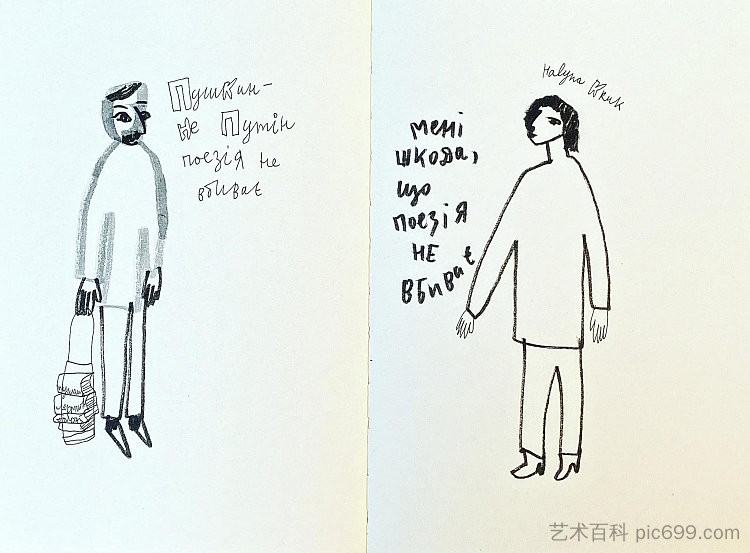 Пушкин –
не Путін
поезія не
вбиває
Halyna Kruk
мені
шкода,
що
поезія
не
вбиває
艺术百科 pic699.com